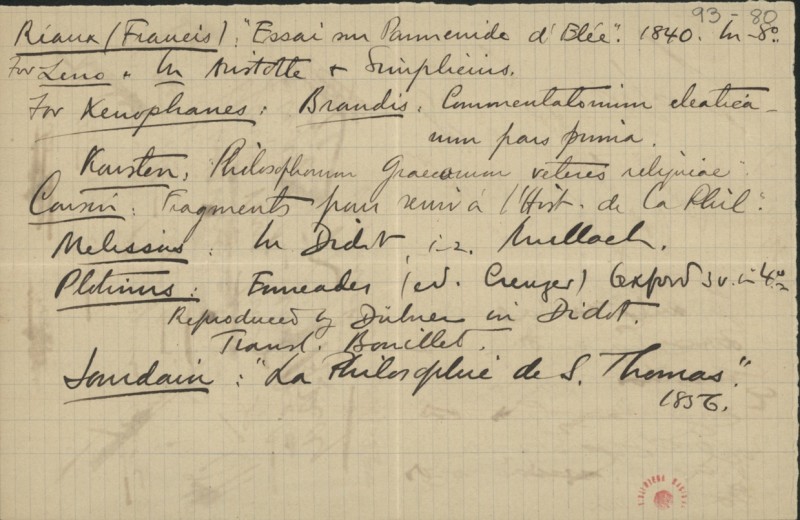 93-80
Riaux (Francis). "Essai sur Parmenide d'Elée". 1840. In-8o.
For Zeno. In Aristotle & Simplicius.
For Xenophanes: Brandis. Commentationum eleatica-
rum pars prima.
Karsten. Philosophorum Graecorum veteres reliquiae
Cousin. Fragments pour servir à l'Hist. de la Phil".
Melissus: In Didot, i-2. Mullach.
Plotinus: Enneades (ed. Creuzer) Oxford 3 v. in-4o
Reproduced by Dübner in Didot.
Transl. Bouillet.
Jourdain: "La Philosophie de S. Thomas".